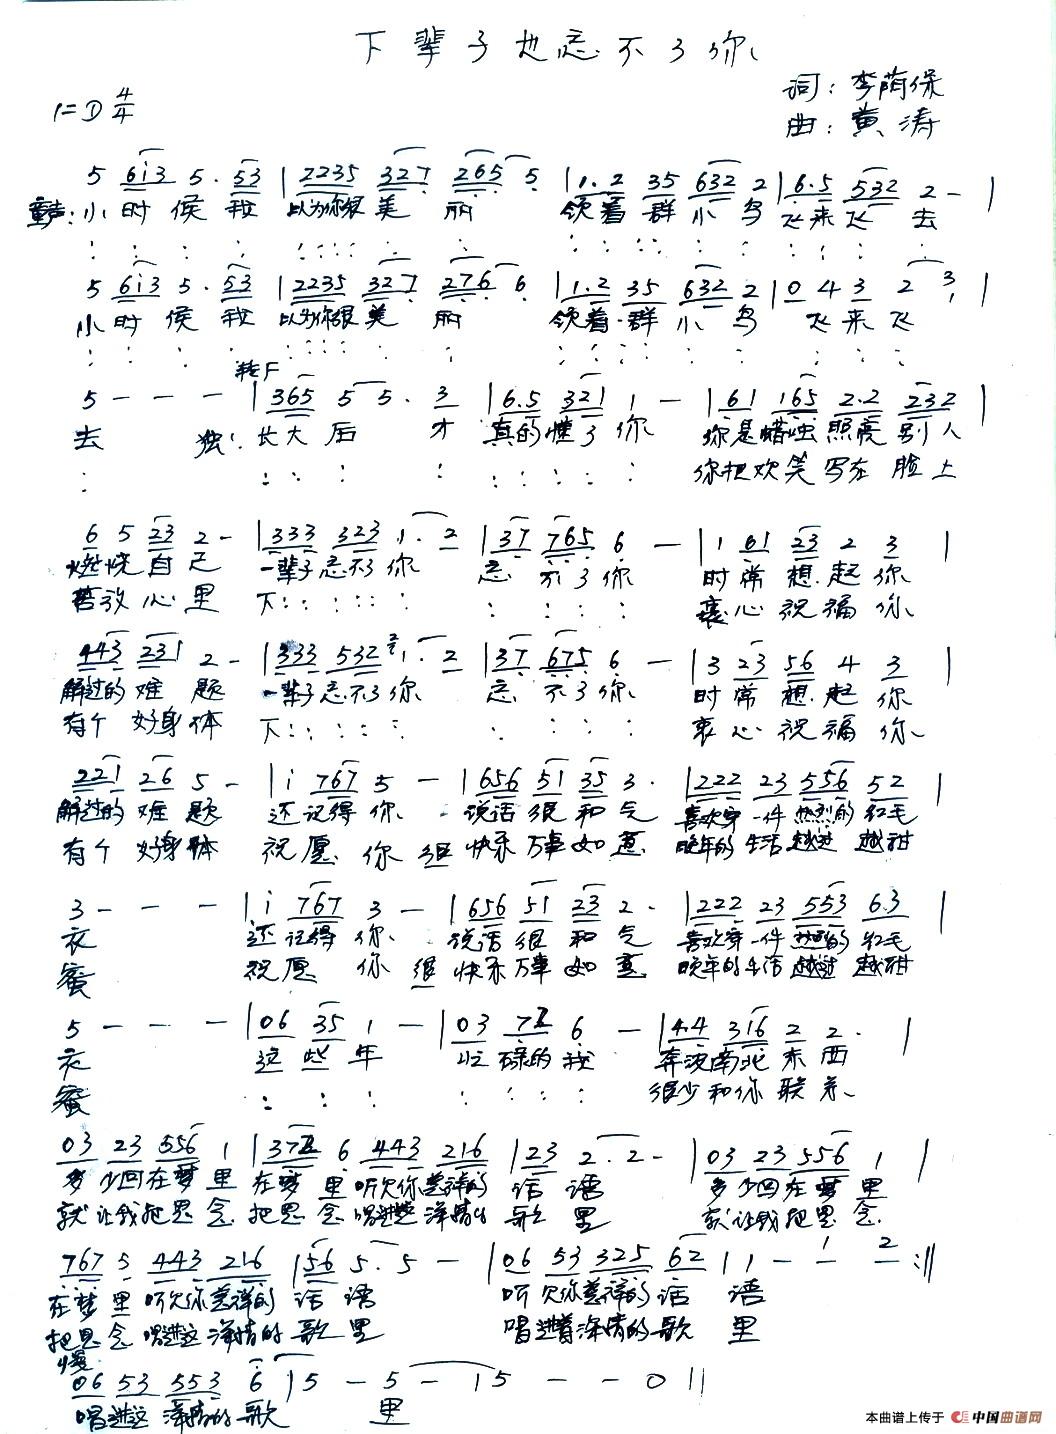 下辈子也忘不了你
1=D 4/4
词：李荫保
曲：黄涛
5 6i3 5· 53 |2235 327 265 5 |1.2 35 632 2 |6.5 532 2 - |
童声：小时候我 以为你很美丽 领着群小鸟 飞来飞去
5 6i3 5· 53 |2235 327 276 6 |1.2 35 632 2 |0 4 3 2 3 , |
小时侯我 以为你很美丽 领着群小鸟 飞来飞
转F
5 - - - |365 5 5· 3 |6.5 321 1 - |61 165 2.2 232 |
去 独：长大后才 真的懂了你 你是蜡烛照亮别人
你把欢笑写在脸上
6 5 23 2 - |333 323 1· 2 |37 765 6 - |1 61 23 2 3 |
燃烧自己 一辈子忘不了你 忘不了你 时常想起你
苦放心里 下 衷心祝福你
443 231 2 - |333 532 1· 2 |37 675 6 - |3 23 56 4 3 |
解过的难题 一辈子忘不了你 忘不了你 时常想起你
有个好身体 下 衷心祝福你
221 26 5 - |i 767 5 - |656 51 35 3· |222 23 556 52 |
解过的难题 还记得你 说话很和气 喜欢穿一件热烈的红毛
有个好身体 祝愿你很快乐万事如意 晚年的生活越过越甜
3 - - - |i 767 3 - |656 51 23 2· |222 23 553 6.3 |
衣 还记得你 说话很和气 喜欢穿一件热烈的红毛
蜜 祝愿你很快乐万事如意 晚年的生活越过越甜
5 - - - |06 35 1 - |03 7 6 - |4.4 316 2 2· |
衣 这些年 忙碌的我 奔波南北东西
蜜 很少和你联系
03 23 556 1 |37 6 443 216 |23 2· 2 - |03 23 556 1 |
多少回在梦里 在梦里听见你慈祥的话语 多少回在梦里
就让我把思念 把思念唱进这深情的歌里 就让我把思念
767 5 443 216 |56 5· 5 - |06 53 325 62 |1 - 1 2 :||
在梦里听见你慈祥的话语 听见你慈祥的话语
把思念唱进这深情的歌里 唱进着深情的歌里
慢
06 53 553 6 |5 - 5 - |5 - - 0 ||
唱进这深情的歌里
本曲谱上传于 中国曲谱网